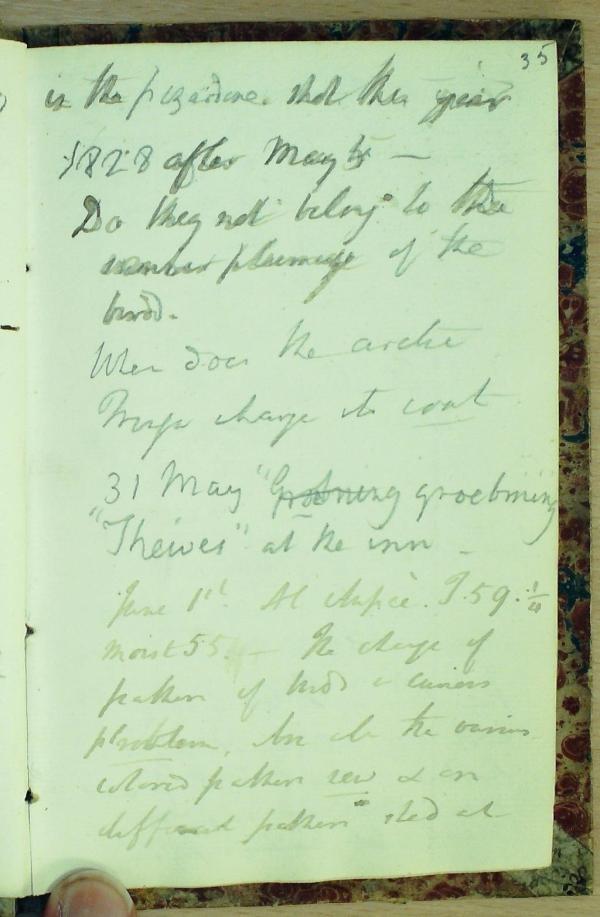 35
in the shot this year
1828 after May
Do they not belong to the
summer plumage of the
bird.
When does the arctic
change its coat
31 May "Grobning groebming
"Theives" at the inn -
June 1st. At T. 59. 1/4
moist 55. - The change of
feathers of birds a curious
problem. Are all the various
colored feathers new & are
different feathers shed at